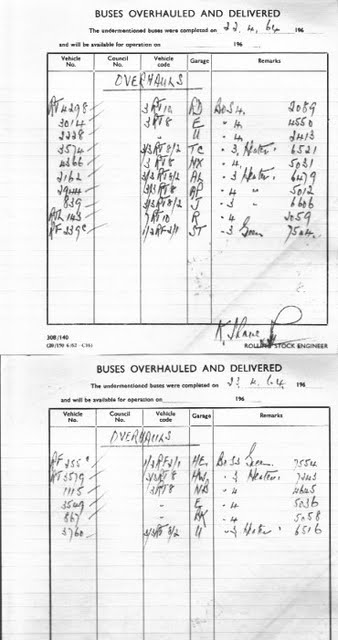 BUSES OVERHAULED AND DELIVERED
The undermentioned buses were completed on 22. 4. 64 196
and will be available for operation on 196
Vehicle No. Council No. Vehicle code Garage Remarks
OVERHAULS
RT 4298 3 RT 10 RD BoS 4. 2089
3014 3 RT 8 E " 4. 4550
2228 " U " 4. 2413
3574 3/3 RT 8/2 TC " 3 Heater. 6521
4366 3 RT 8 NX " 4. 5031
2162 3/3 RT 8/2 AL " 3 Heater. 6479
2944 3 RT 8 AP " 4 " 5012
839 3/3 RT 8/2 J " 3 " 6606
RTL 143 7 RT 10 R " 4. 2059
RF 339 c 1/2 RF 2/1 ST " 3 Green 7504.
308/140
(20/150 6/62 - C16)
ROLLING STOCK ENGINEER
BUSES OVERHAULED AND DELIVERED
The undermentioned buses were completed on 23. 4. 64 196
and will be available for operation on 196
Vehicle No. Council No. Vehicle code Garage Remarks
OVERHAULS
RF 255 c 1/2 RF 2/1 HE. BoS 3 Green. 7554
RT 3579 3/3 RT 8 HW. " 3 Heater. 7243
1115 3 RT 8 NB " 4 4625
3549 " E " 4. 5036
867 " AK " 4 5058
3760 3/3 RT 8/2 U " 3 Heater. 6516